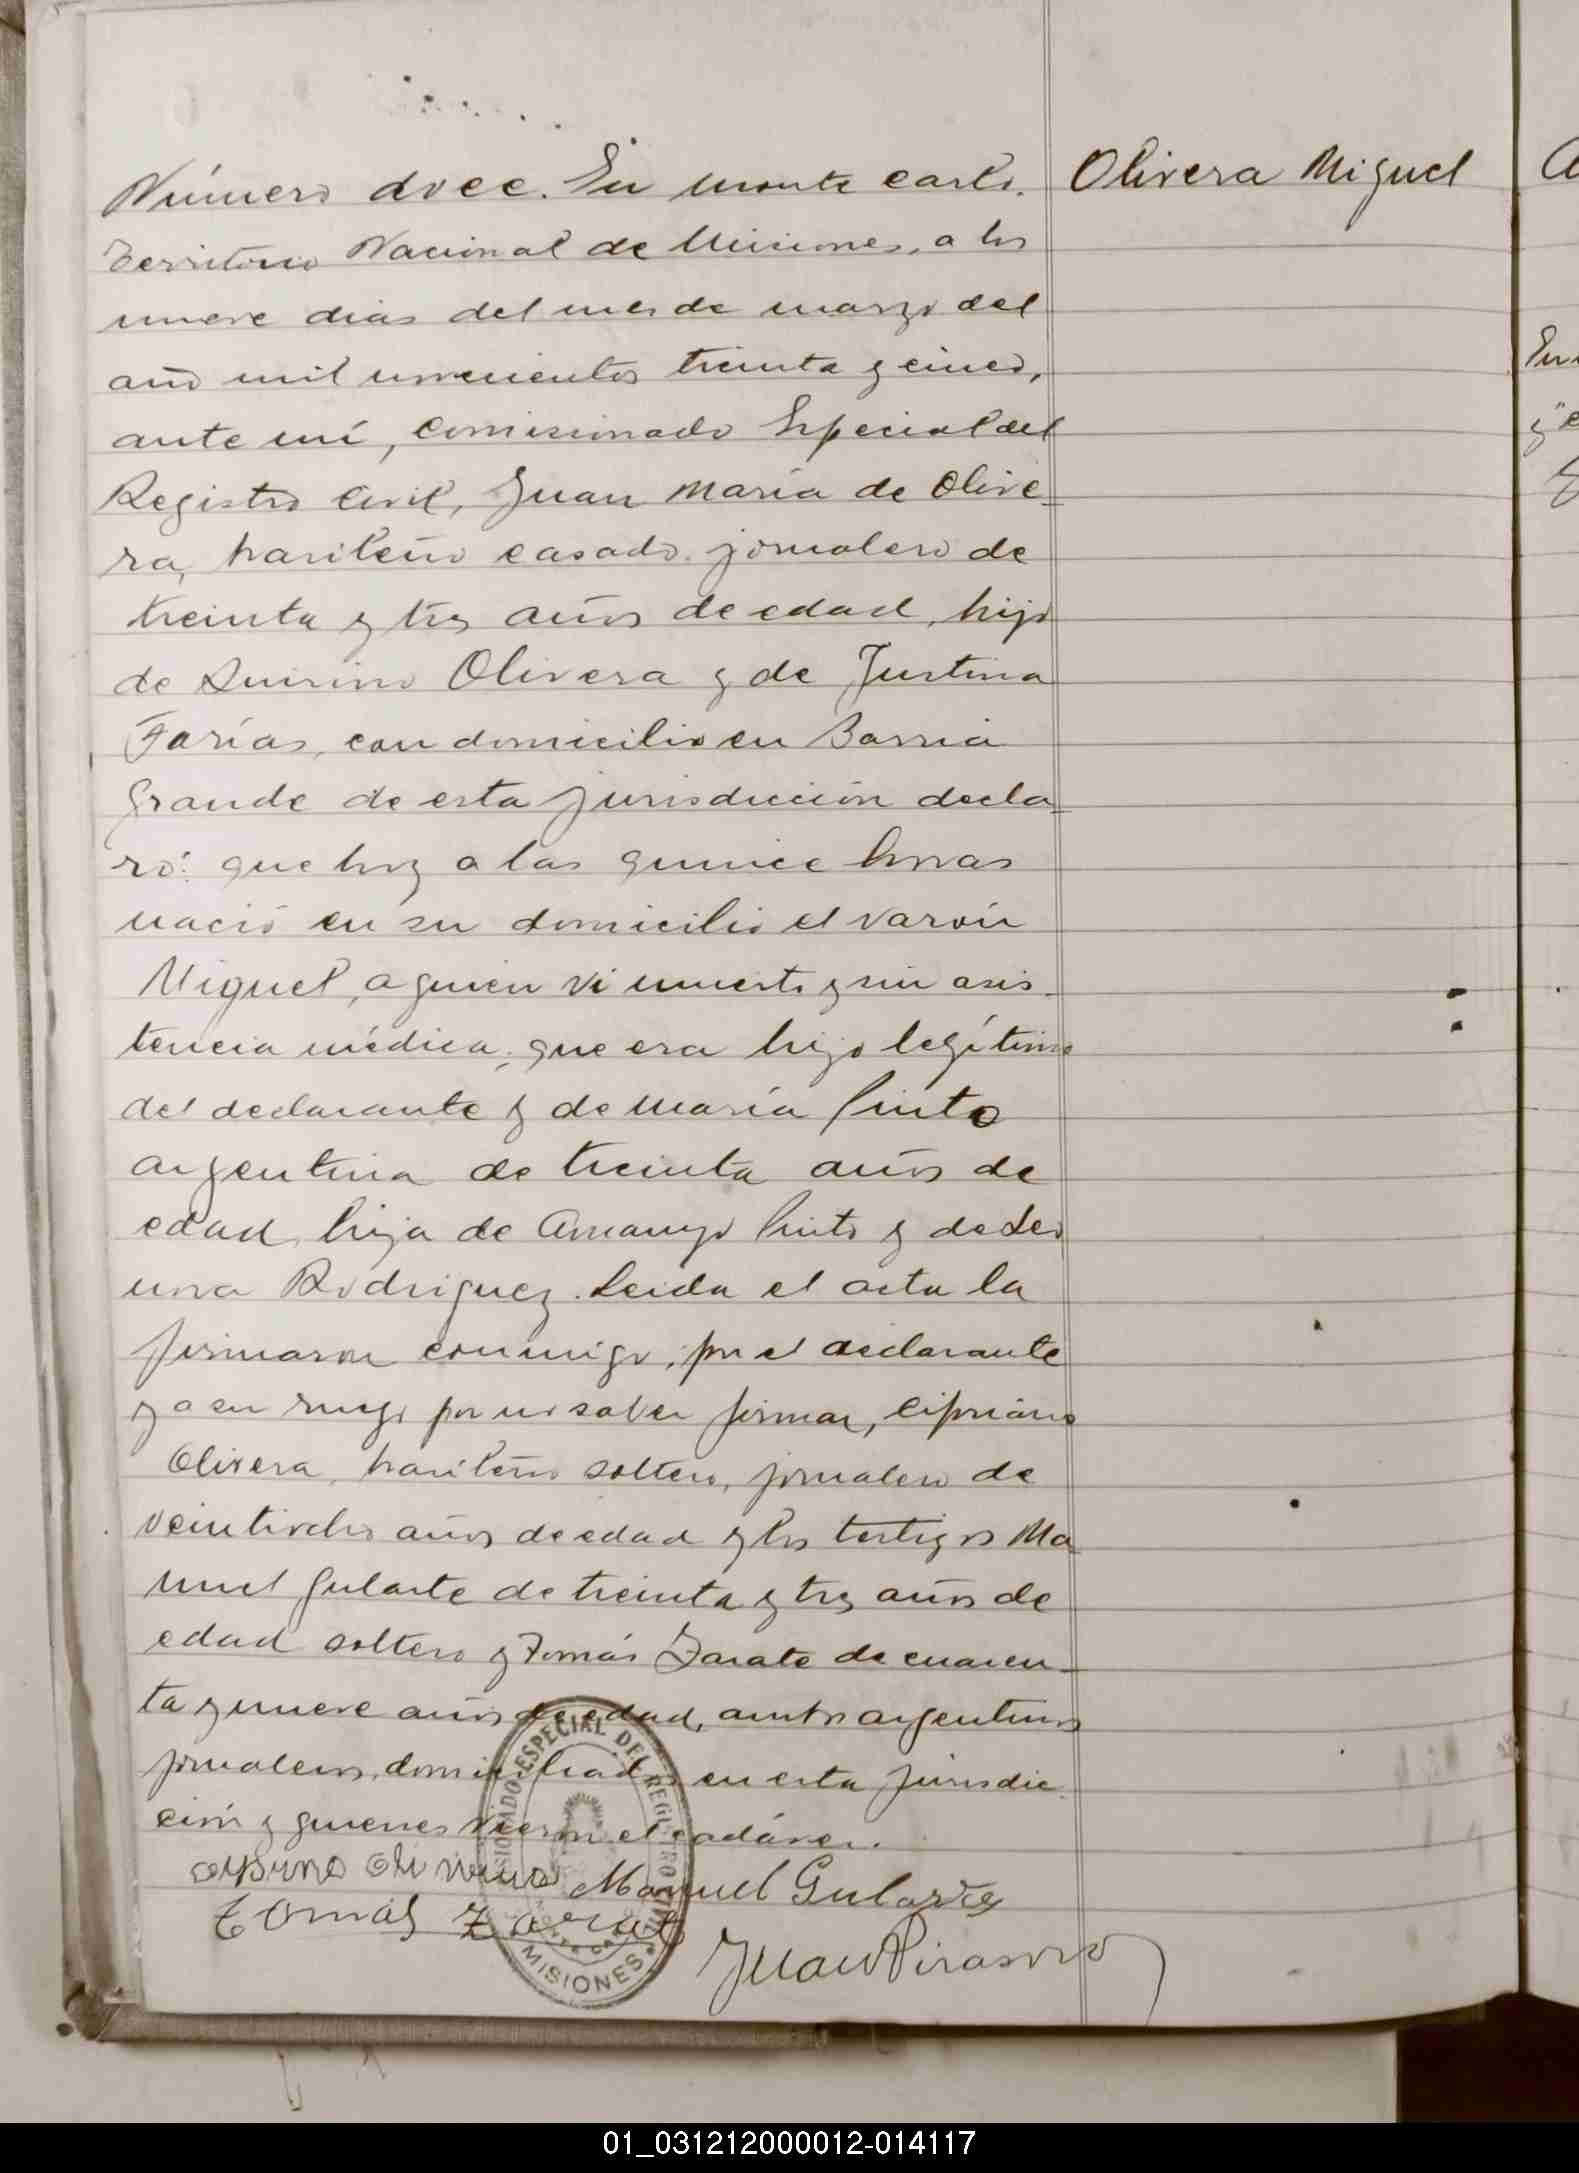 Número doce. En Monte Carlo. Olivera Miguel
Territorio Nacional de Misiones, a los
nueve dias del mes de marzo del
año mil novecientos treinta y cinco,
ante mí, Comisionado Especial del
Registro Civil, Juan María de Olive-
ra, brasileño casado, jornalero de
treinta y tres años de edad, hijo
de Quirino Olivera y de Justina
Farías, con domicilio en Barra
Grande de esta jurisdicción decla-
ró: que hoy a las quince horas
nació en su domicilio el varón
Miguel, a quien vi muerto y sin asis-
tencia médica; que era hijo legítimo
del declarante y de María Pinto
argentina de treinta años de
edad, hija de Pinto y de Leo
Rodriguez. Leida el acta la
firmaron conmigo, por el declarante
y a su ruego por no saber firmar, Cipriano
Olivera, brasileño soltero, jornalero de
años de edad y los testigos Ma
nuel Gularte de treinta y tres años de
edad soltero y Tomás Zarate de cuaren-
ta y nueve años de edad, ambos argentinos
jornaleros, domiciliados en esta jurisdic-
ción y quienes vieron el cadáver.
Manuel Gularte
Tomas Zarate
ESPECIAL DEL REGISTRO CIVIL
MISIONES
01_031212000012-014117